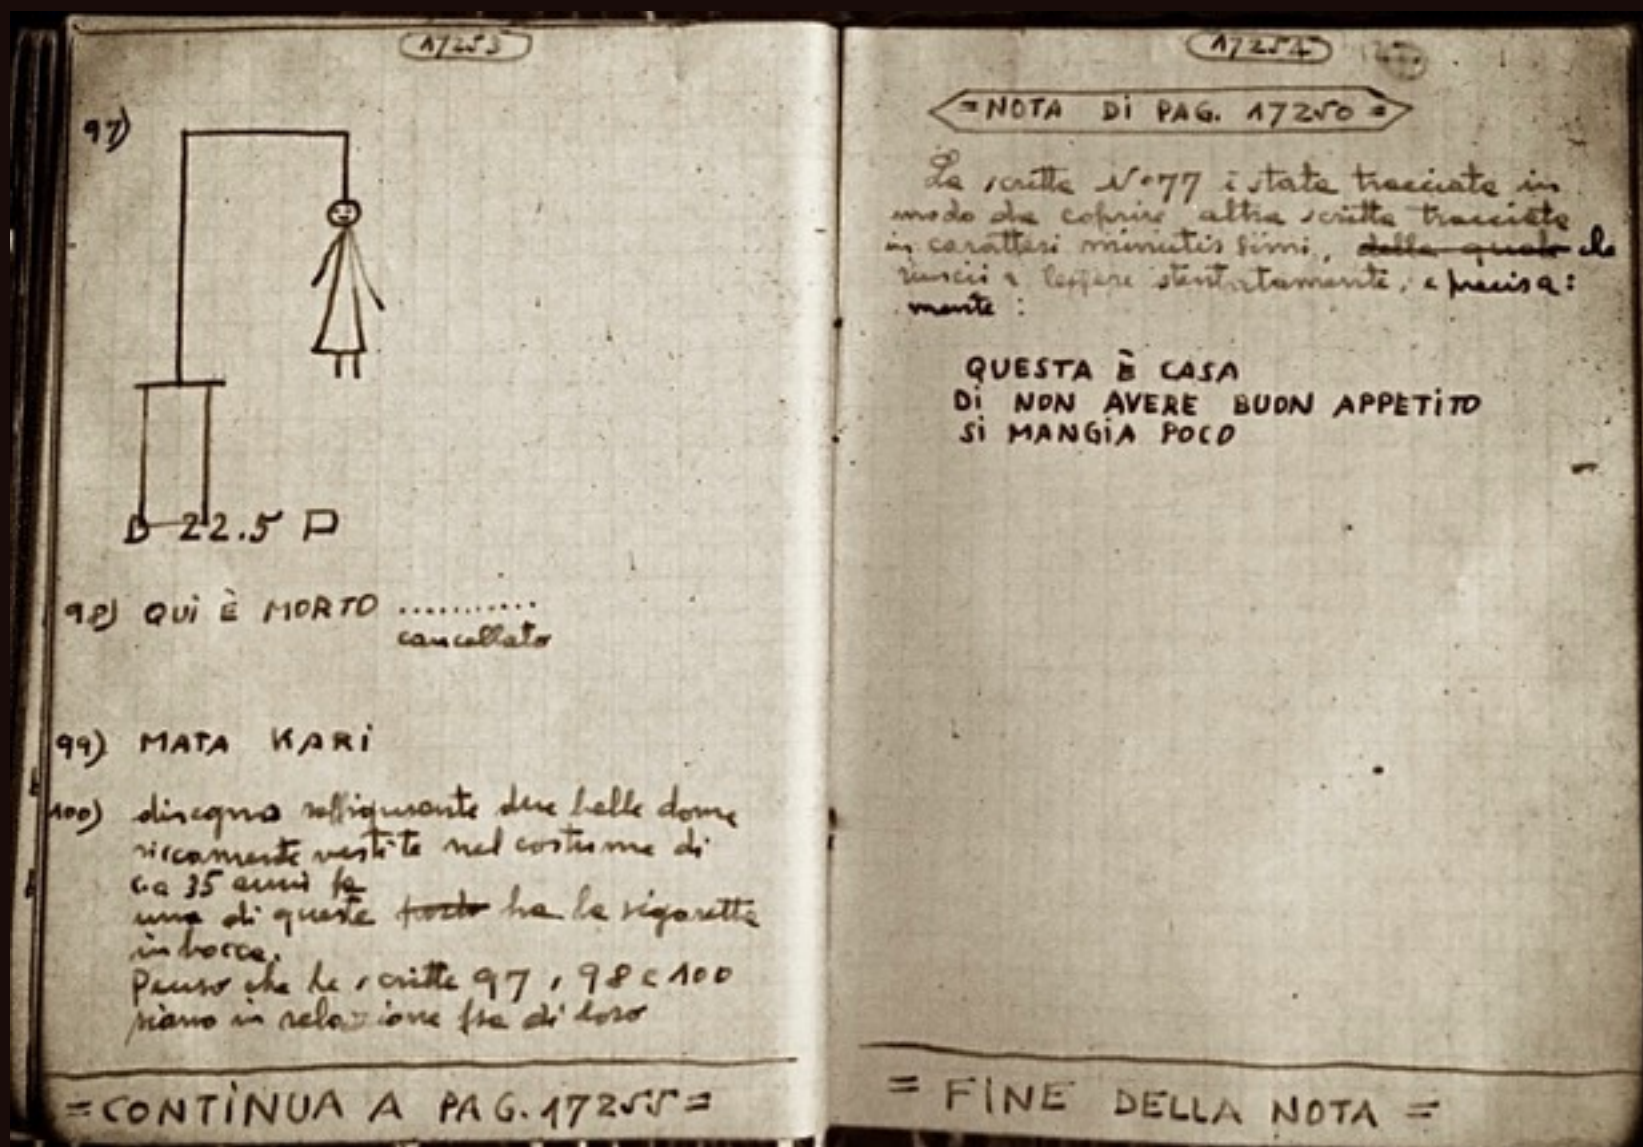 17253
97)
D 22.5 P
98) QUI È MORTO ...........
cancellato
99) MATA KARI
100) disegno raffigurante due belle donne
riccamente vestite nel costume di
ca 35 anni fa
una di queste ha la sigaretta
in bocca.
Penso che le scritte 97, 98 e 100
siano in relazione fra di loro
=CONTINUA A PAG. 17255=
17254
=NOTA DI PAG. 17250=
La scritta N°77 è stata tracciata in
modo da coprire altra scritta tracciata
in caratteri minutissimi, della quale che
riuscii a leggere stentatamente, e precisa:
mente:
QUESTA È CASA
DI NON AVERE BUON APPETITO
SI MANGIA POCO
= FINE DELLA NOTA =